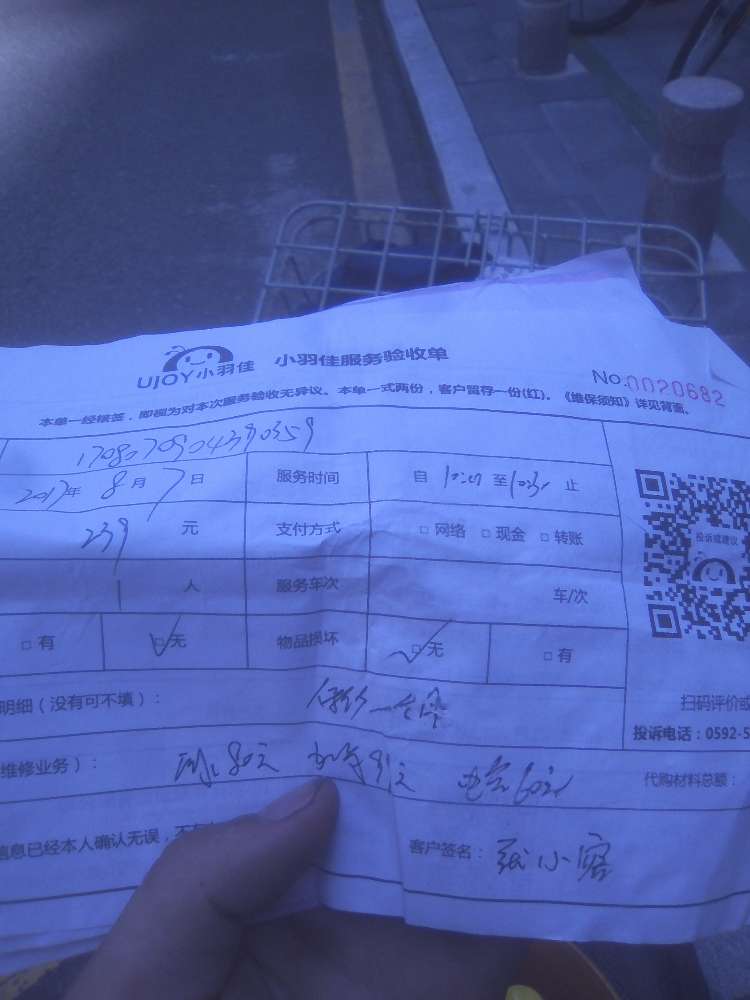 UJOY小羽佳 小羽佳服务验收单
No.0020682
本单一经核签，即视为对本次服务验收无异议。本单一式两份，客户留存一份(红)。《维保须知》详见背面。
2017年 8月 7日 服务时间 自 至 止
239 元 支付方式 □ 网络 □ 现金 □ 转账
投诉或建议
1 人 服务车次 车/次
□ 有 □无 物品损坏 □无 □ 有
明细（没有可不填）：
扫码评价或
投诉电话：0592-5
维修业务）： 80元
代购材料总额：
信息已经本人确认无误，不
客户签名： 张小容